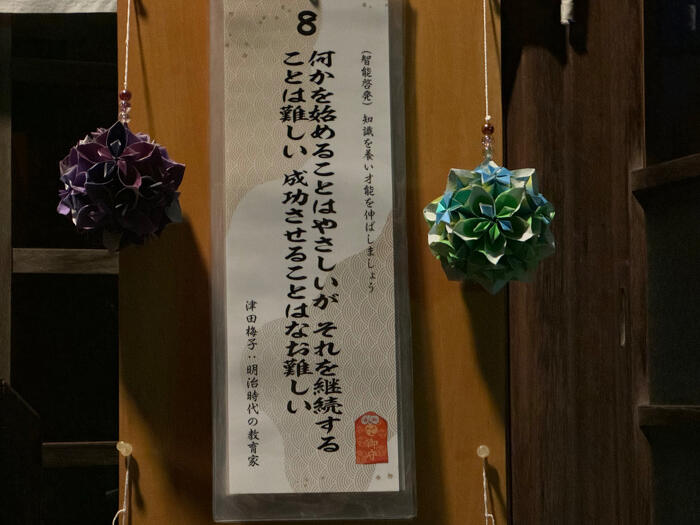 8
(智能啓発) 知識を養い才能を伸ばしましょう
何かを始めることはやさしいが それを継続する
ことは難しい 成功させることはなお難しい
津田梅子:明治時代の教育家
御守